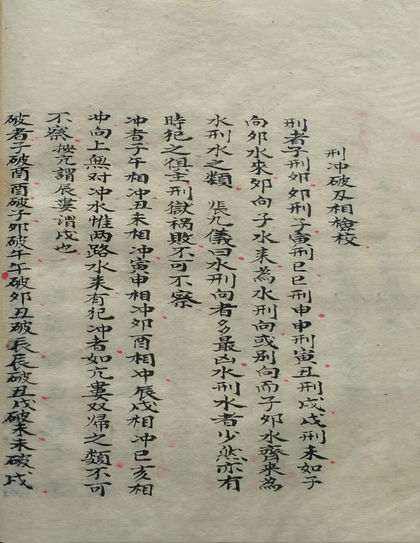 刑冲破及相檢校
刑者子刑卯卯刑子寅刑巳巳刑申申刑寅丑刑戌戌刑未如子
向卯水來卯向子水来為水刑向或别向而子卯水齊来為
水刑水之類 張九儀曰水刑向者多最凶水刑水者少然亦有
時犯之俱主刑獄禍敗不可不察
冲者子午相冲丑未相冲寅申相冲卯酉相冲辰戌相冲巳亥相
冲向上無对冲水惟两路水来有犯冲者如亢婁双帰之類不可
不察 按亢謂辰婁謂戌也
破者子破酉酉破子卯破午午破卯丑破辰辰破丑戌破未未破戌